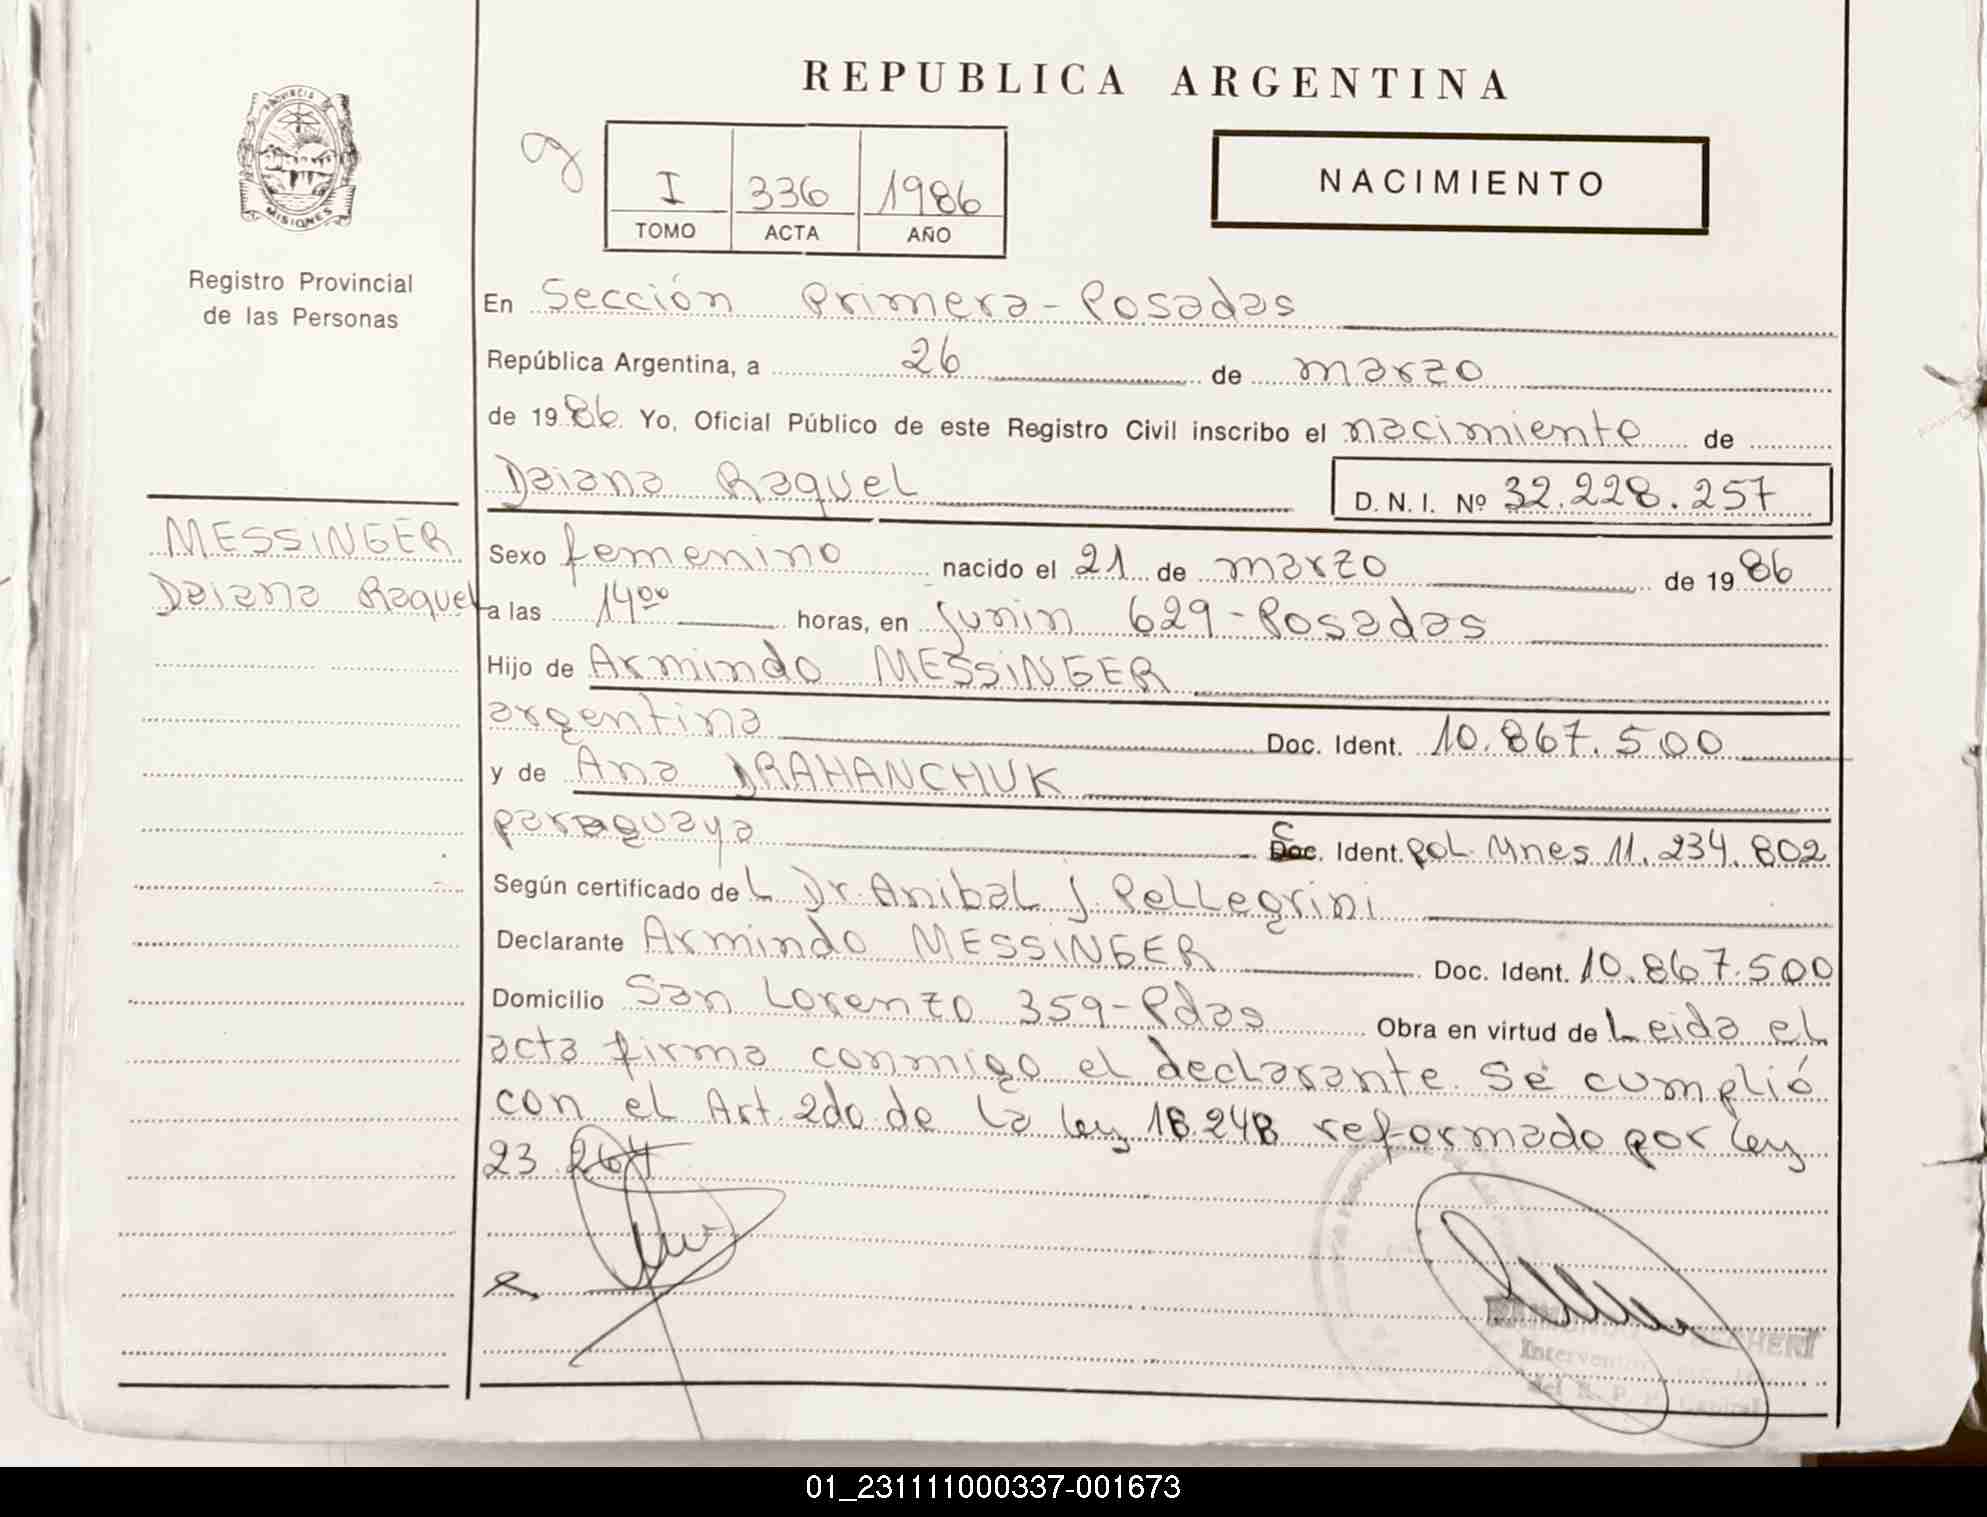 REPUBLICA ARGENTINA
PROVINCIA DE
MISIONES
Registro Provincial
de las Personas
I 336 1986
TOMO ACTA AÑO
NACIMIENTO
En Sección Primera - Posadas
República Argentina, a 26 de marzo
de 1986. Yo, Oficial Público de este Registro Civil inscribo el nacimiento de
Daiana Raquel D. N. I. Nº 32.228.257
MESSiNGER
Daiana Raquel
Sexo femenino nacido el 21 de marzo de 1986
a las 14⁰⁰ horas, en Junin 629 - Posadas
Hijo de Armindo MESSiNGER
argentina Doc. Ident. 10.867.500
y de Ana DRAHANCHUK
paraguaya C. Ident. Pol. Mnes 11.234.802
Según certificado deL Dr. Anibal J. Pellegrini
Declarante Armindo MESSiNGER Doc. Ident. 10.867.500
Domicilio San Lorenzo 359 - Pdas Obra en virtud de Leida el
acta firma conmigo el declarante. Se cumplió
con el Art. 2do de la ley 18.248 reformado por ley
23.264
Interventor
del R. P.
01_231111000337-001673